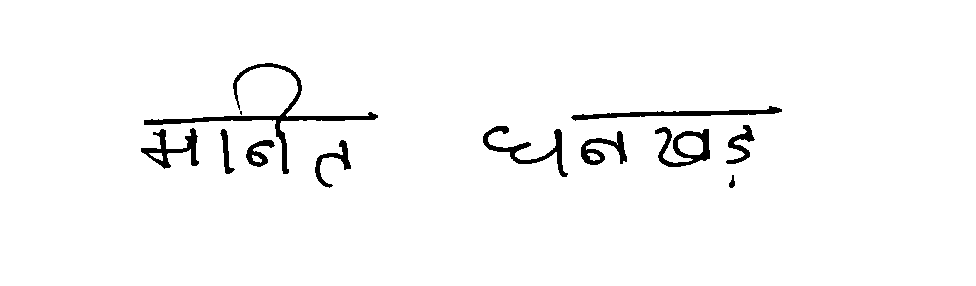 मानीत धनखड़